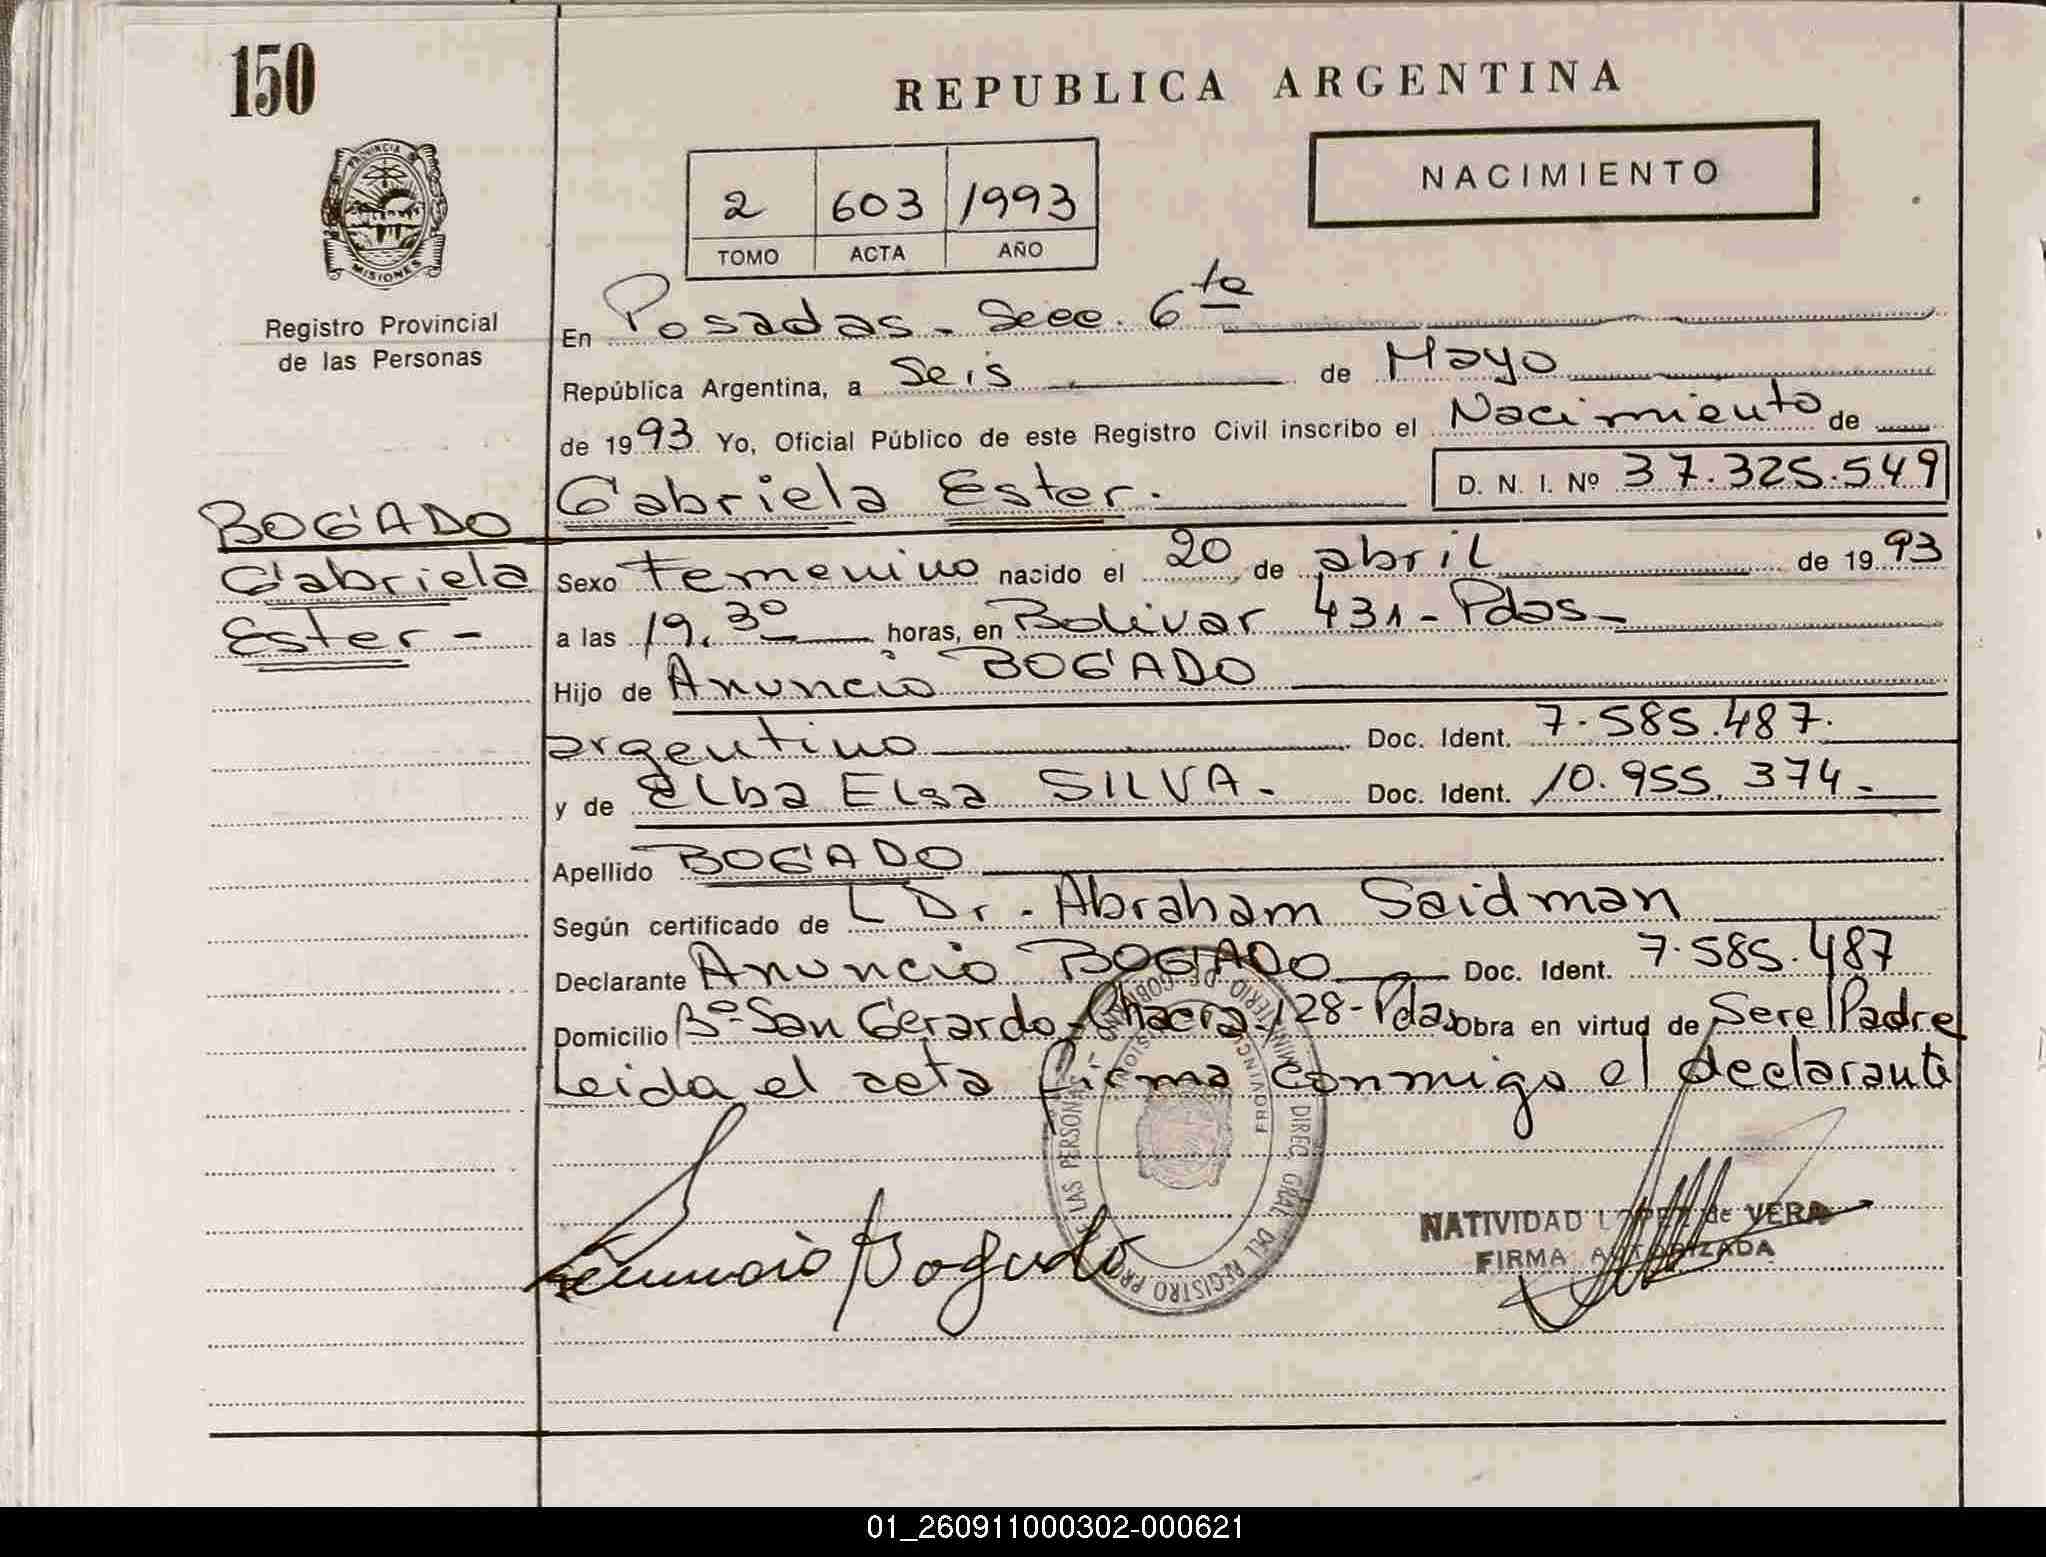 150
REPUBLICA ARGENTINA
NACIMIENTO
2 603 1993
TOMO ACTA AÑO
PROVINCIA DE
MISIONES
Registro Provincial
de las Personas
En Posadas - Secc. 6ta
República Argentina, a Seis de Mayo
de 1993 Yo, Oficial Público de este Registro Civil inscribo el Nacimiento de
Gabriela Ester. D. N. I. Nº 37.325.549
BOGADO
Gabriela
Ester -
Sexo Femenino nacido el 20 de abril de 1993
a las 19.30 horas, en Bolivar 431 - Pdas -
Hijo de Anuncio BOGADO
argentino Doc. Ident. 7.585.487.
y de Elba Elsa SILVA. - Doc. Ident. 10.955.374 -
Apellido BOGADO
Según certificado de L Dr. Abraham Saidman
Declarante Anuncio BOGADO Doc. Ident. 7.585.487
Domicilio Bº San Gerardo - Chacra 128 - Pdas Obra en virtud de Ser el Padre
Leida el acta firma conmigo el declarante
Anuncio Bogado
NATIVIDAD LOPEZ de VERA
FIRMA AUTORIZADA
DIREC. GRAL. DEL REGISTRO PROV. DE LAS PERSONAS
MINISTERIO DE GOBIERNO
01_260911000302-000621